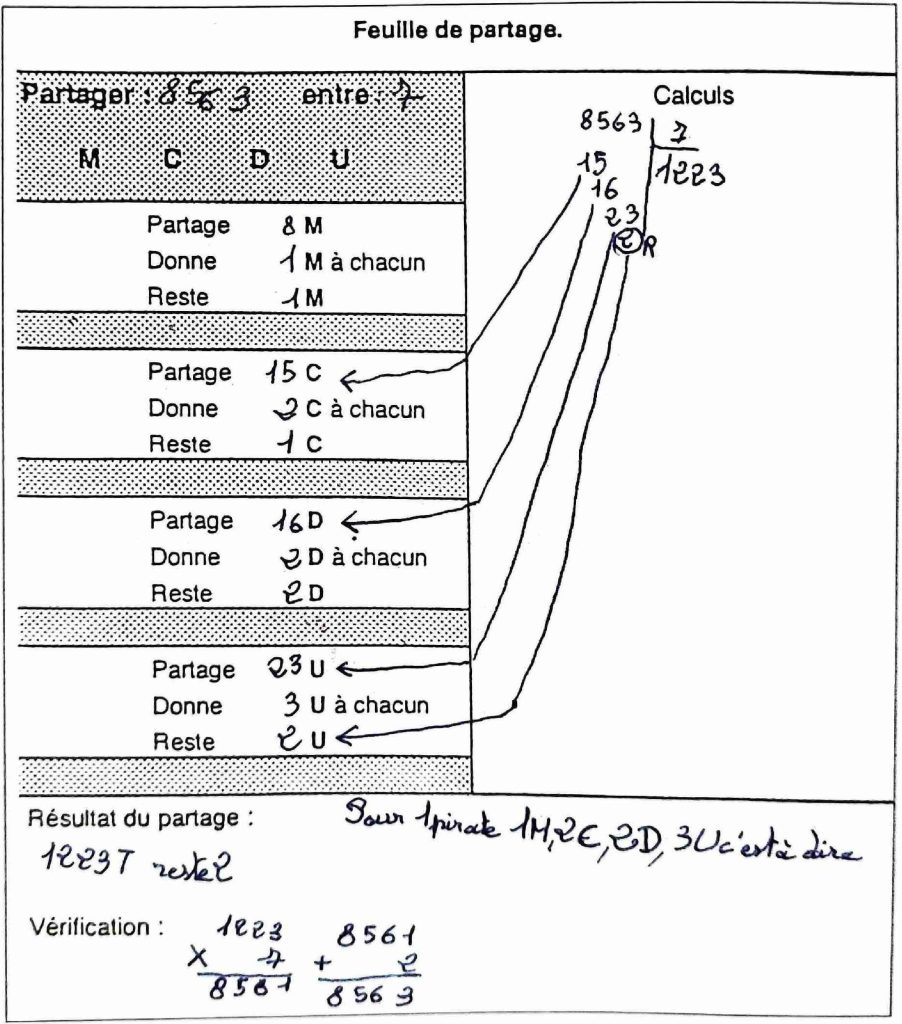 Feuille de partage.
Partager : 8563 entre : 7
M C D U
Partage 8 M
Donne 1 M à chacun
Reste 1 M
Partage 15 C
Donne 2 C à chacun
Reste 1 C
Partage 16 D
Donne 2 D à chacun
Reste 2 D
Partage 23 U
Donne 3 U à chacun
Reste 2 U
Calculs
8563 7
15 1223
16
23
2 R
Résultat du partage : Pour 1 pirate 1M, 2C, 2D, 3U c'est à dire
1223T reste 2
Vérification :
1223
X 7
8561
8561
+ 2
8563